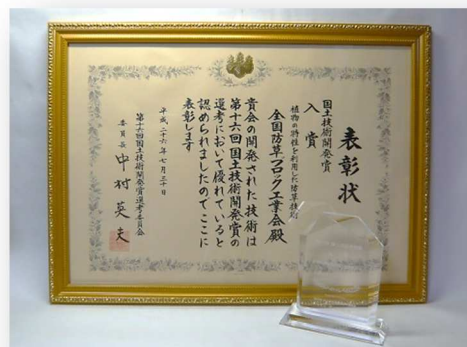 表彰状
国土技術開発賞
入賞
植物の特性を利用した防草技術
全国防草ブロック工業会殿
貴会の開発された技術は
第十六回国土技術開発賞の
選考において優れていると
認められましたのでここに
表彰します
平成二十六年七月三十日
第十六回国土技術開発賞選考委員会
委員長 中村英夫